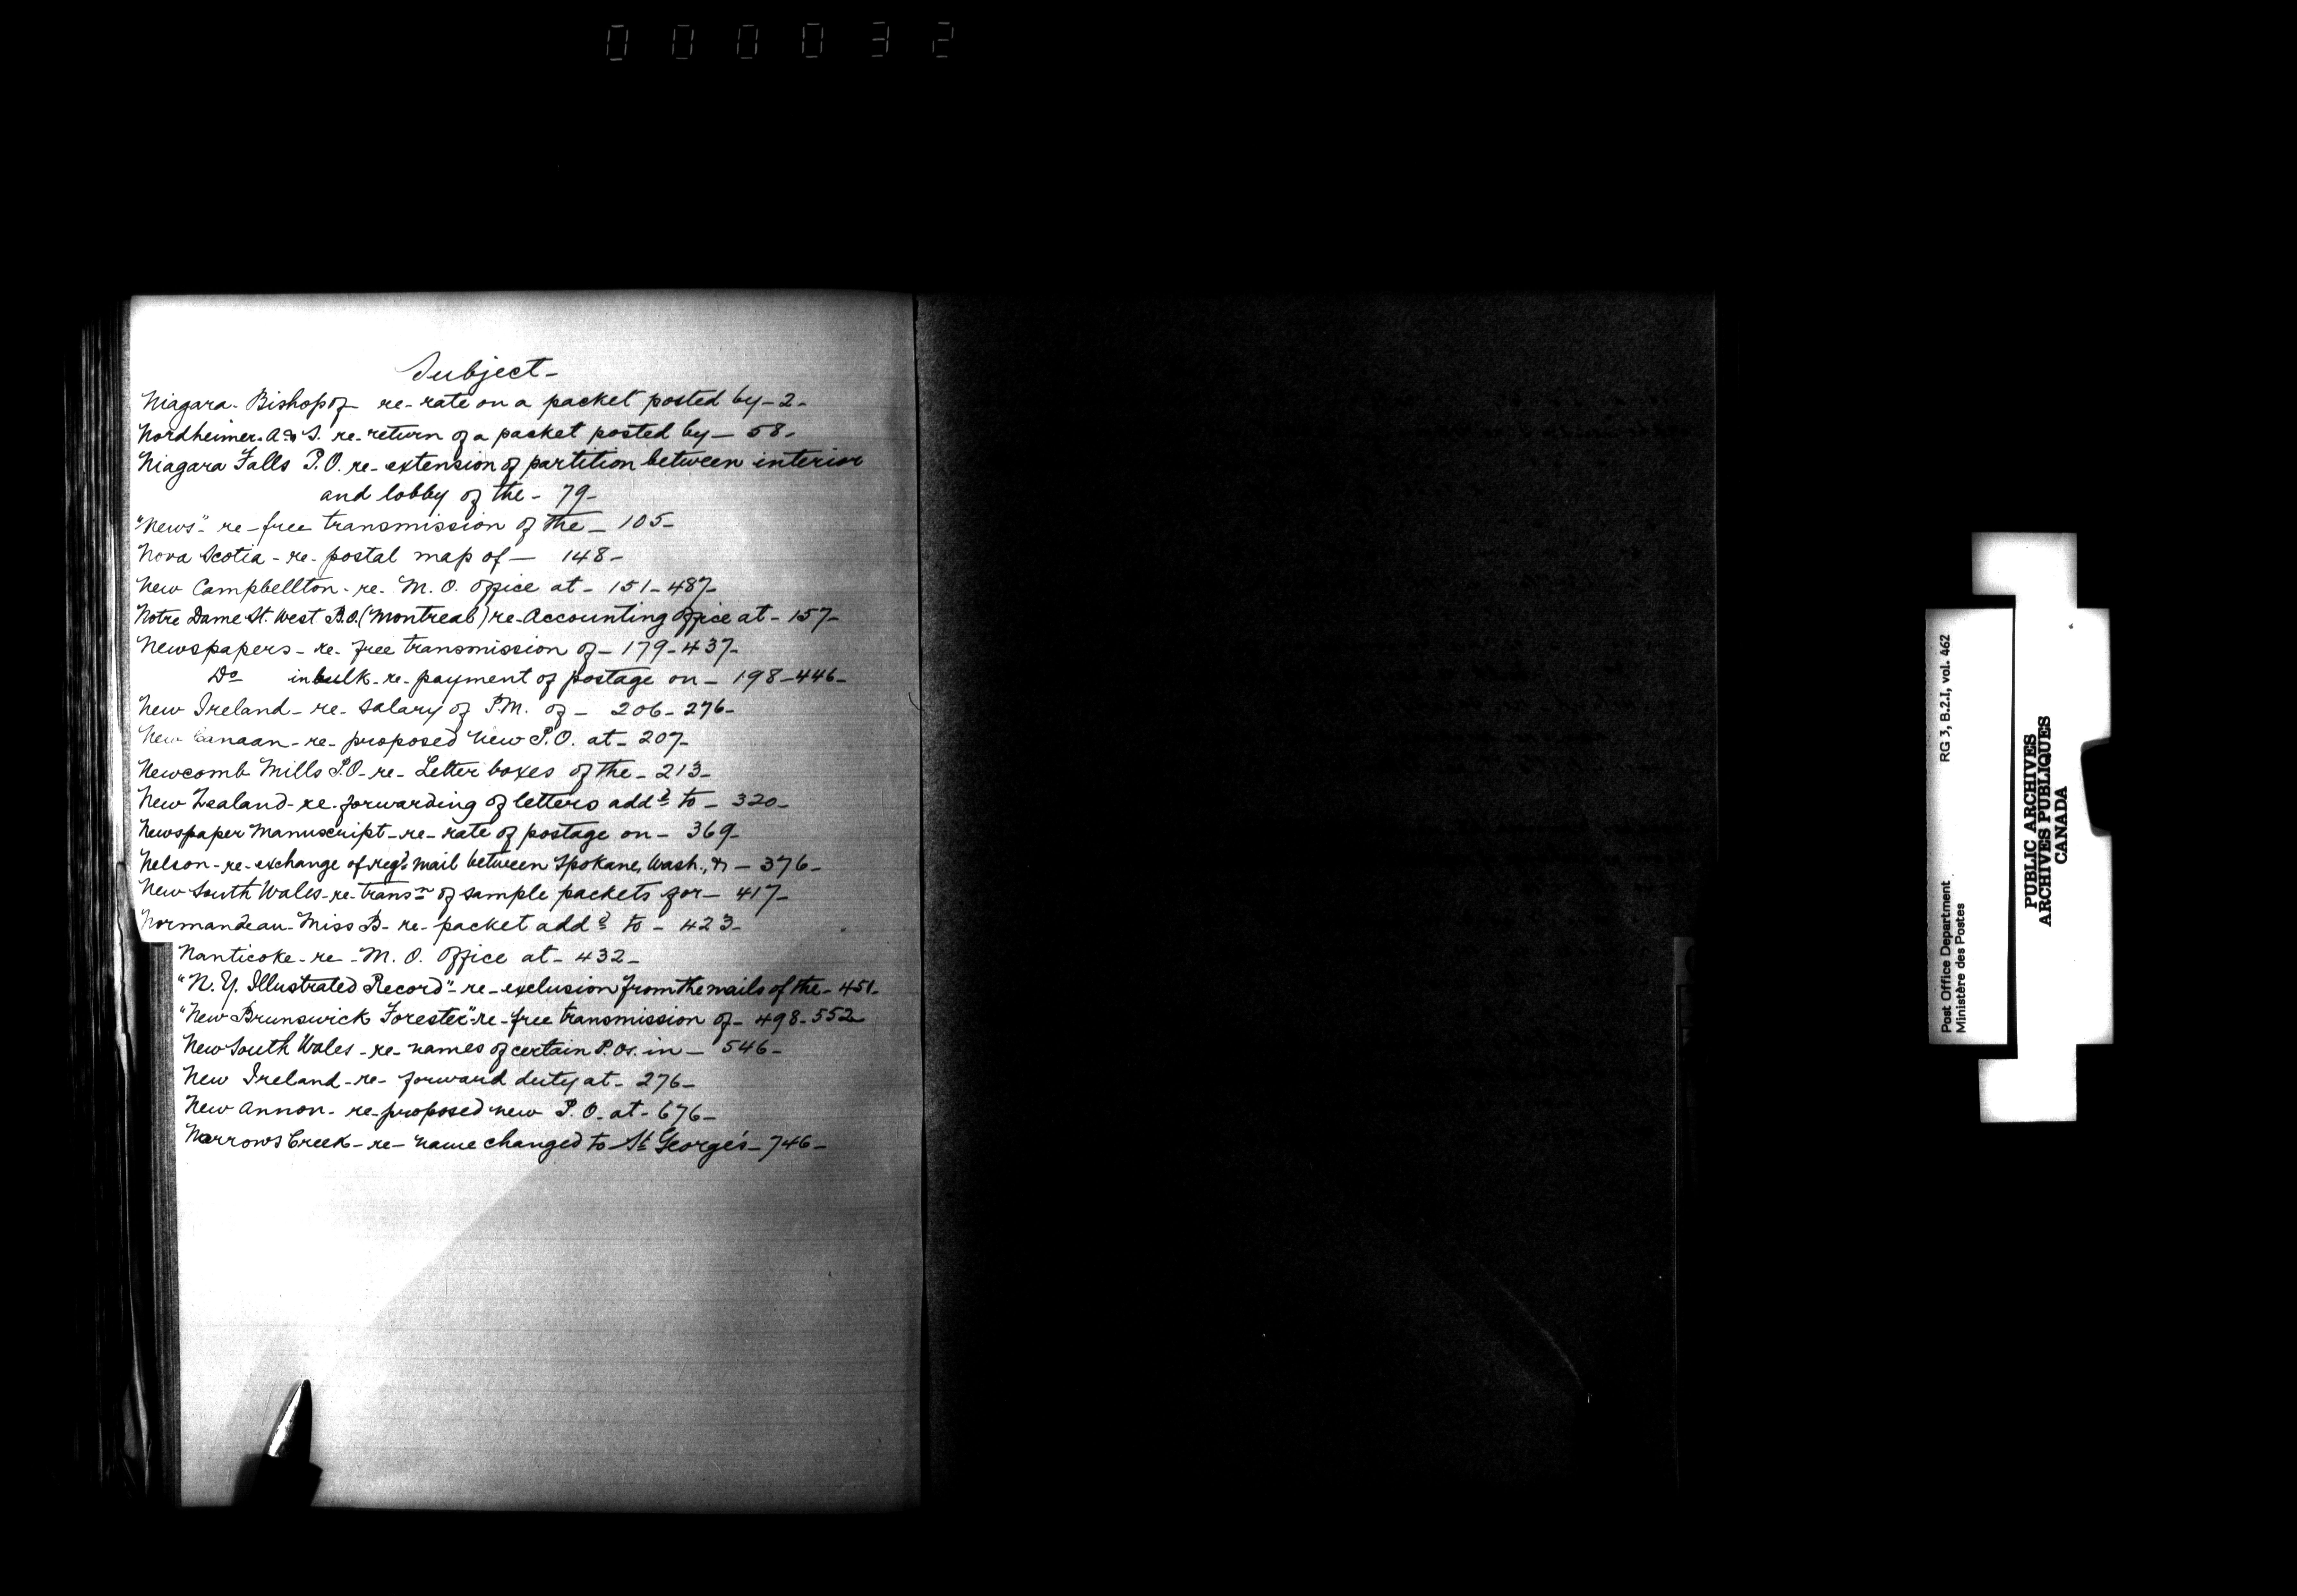 000032
Subject-
Niagara- Bishop of re-rate on a packet posted by-2-
Nordheimer. A & S. re-return of a packet posted by- 58-
Niagara Falls P.O. re-extension of partition between interior
and lobby of the- 79-
"News"- re-free transmission of the- 105-
Nova Scotia-re-postal map of- 148-
New Campbellton-re-M.O. Office at- 151-487-
Notre Dame St. West B.O. (Montreal) re-Accounting Office at- 157-
Newspapers-re-free transmission of- 179-437-
Do in bulk-re-payment of postage on- 198-446-
New Ireland-re-Salary of P.M. of- 206-276-
New Canaan-re-proposed New P.O. at- 207-
Newcomb Mills P.O-re-Letter boxes of the- 213-
New Zealand-re-forwarding of letters addd to- 320-
Newspaper Manuscript-re-rate of postage on- 369-
Nelson-re-exchange of regd. mail between Spokane, Wash., & - 376-
New South Wales-re-transn of sample packets for- 417-
Normandeau-Miss B-re-packet addd to- 423-
Nanticoke-re-M.O. Office at- 432-
"N.Y. Illustrated Record"-re-exclusion from the mails of the- 451-
"New Brunswick Forester"-re-free transmission of- 498-552
New South Wales-re-names of certain P.Os. in- 546-
New Ireland-re-forward duty at- 276-
New Annon-re-proposed new P.O. at- 676-
Narrows Creek-re-name changed to St George's- 746-
Post Office Department RG 3, B.2.I, vol. 462
Ministère des Postes
PUBLIC ARCHIVES
ARCHIVES PUBLIQUES
CANADA